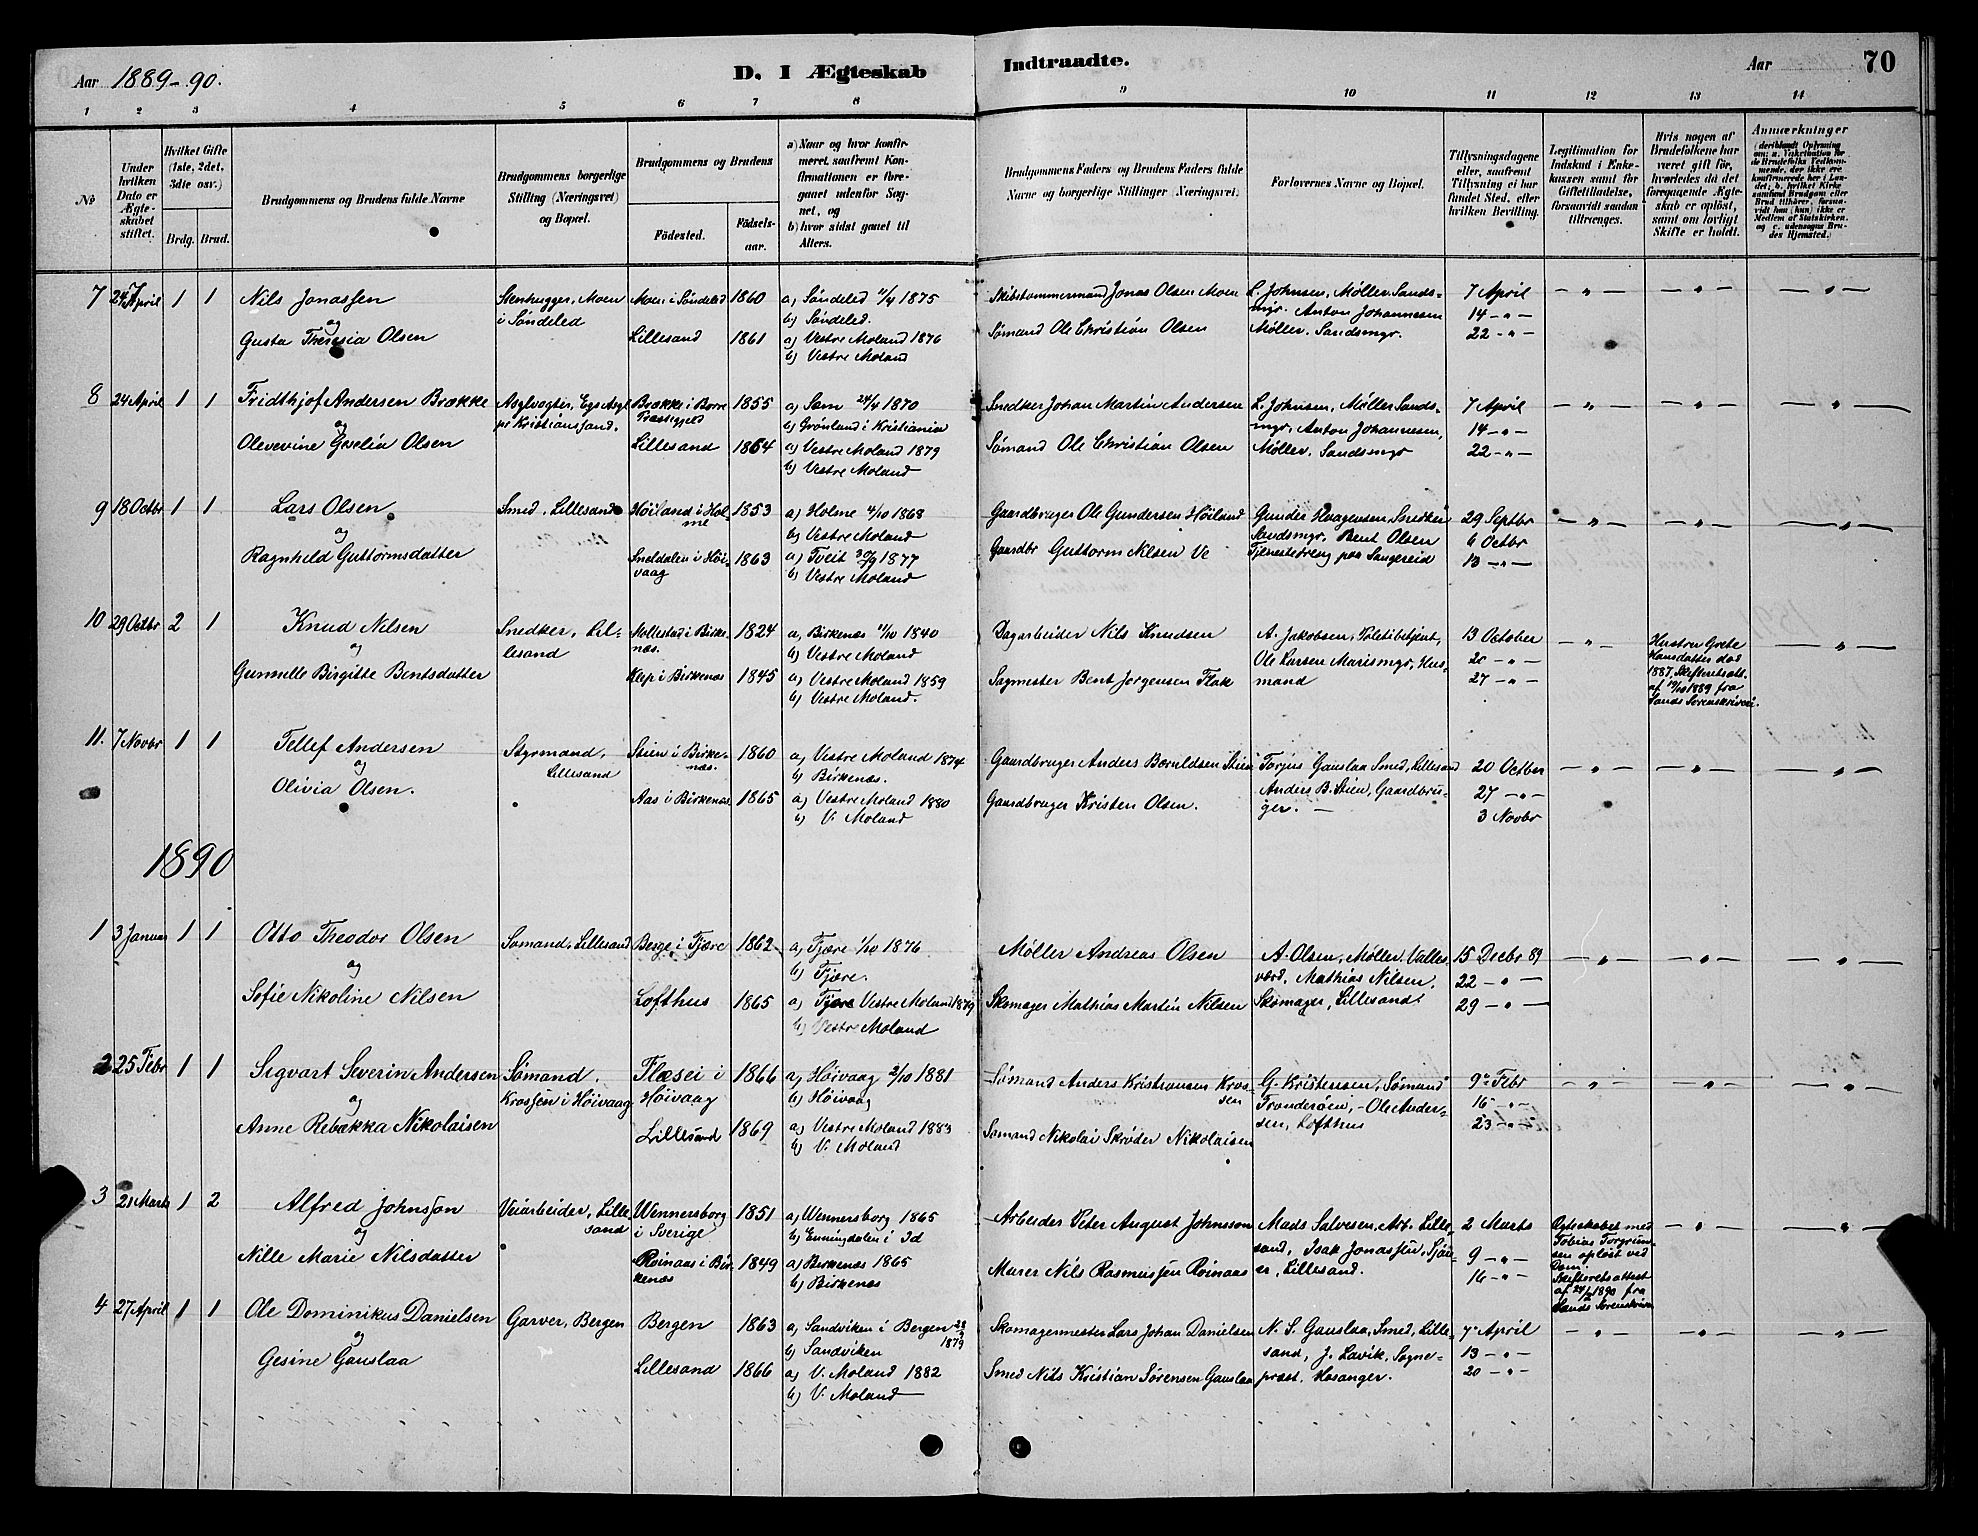 Aar 1889-90. D. I Ægteskab Indtraadte. Aar 70
1 2 3 4 5 6 7 8 9 10 11 12 13 14
No
Under hvilken Dato er Ægteskabet stiftet.
Hvilket Gifte (1ste, 2det, 3die osv.)
Brdg. Brud.
Brudgommens og Brudens fulde Navne
Brudgommens borgerlige Stilling (Næringsvei) og Bopæl.
Brudgommens og Brudens
Födested. Födsels-aar.
a) Naar og hvor konfirmeret, saafremt Konfirmationen er foregaaet udenfor Sognet, og
b) hvor sidst gaaet til Alters.
Brudgommens Faders og Brudens Faders fulde Navne og borgerlige Stillinger (Næringsvei).
Forlovernes Navne og Bopæl.
Tillysningsdagene eller, saafremt Tillysning ei har fundet Sted, efter hvilken Bevilling.
Legitimation for Indskud i Enkekassen samt for Giftetilladelse, forsaavidt saadan tiltrænges.
Hvis nogen af Brudefolkene har været gift för, hvorledes da det foregaaende Ægteskab er oplöst, samt om lovligt Skifte er holdt.
Anmærkninger
7 1 1 Nils Jonassen
og
Gusta Theresia Olsen
Stenhugger, Moen
i Søndeled
Moen i Søndeled 1860
Lillesand 1861
a) Søndeled 11/4 1875
b) Søndeled.
a) Vestre Moland 1876
b) Vestre Moland
Skibstømmermand Jonas Olsen Moen
Sømand Ole Christian Olsen
L. Johnsen, Møller Sands-
mgr. Anton Johannesen
Møller, Sandsmgr.
7 April
14 - " -
22 - " -
8 24 April 1 1 Fridthjof Andersen Brække
og
Olevine Gvelia Olsen
Asylvogter, Egs Asyl
pr Kristianssand.
Brække i Borre
Præstegjeld 1855
Lillesand 1864
a) Sem 24/4 1870
b) Grønland i Kristiania
a) Vestre Moland 1879
b) Vestre Moland
Snedker Johan Martin Andersen
Sømand Ole Christian Olsen
L. Johnsen, Møller Sands-
mgr, Anton Johannesen,
Møller, Sandsmgr
7 April
14 - " -
22 - " -
9 18 Octbr 1 1 Lars Olsen
og
Ragnhild Guttormsdatter
Smed, Lillesand
Høiland i Hol-
me 1853
Sneldalen i Høi-
vaag 1863
a) Holme 4/10 1868
b) Vestre Moland
a) Tveit 30/9 1877
b) Vestre Moland
Gaardbruger Ole Gundersen Høiland
Gaardbr Guttorm Nilsen Ve
Gunder Haagensen, Snedker
Sandsmgr, Bent Olsen
Tjenestedreng paa Sangereid
29 Septbr
6 Octbr
13 - " -
10 29 Octbr 2 1 Knud Nilsen
og
Gunnelle Birgitte Bentsdatter
Snedker, Lil-
lesand
Mollestad i Birke-
næs 1824
Klep i Birkenæs 1845
a) Birkenæs 11/10 1840
b) Vestre Moland
a) Vestre Moland 1859
b) Vestre Moland.
Dagarbeider Nils Knudsen
Sagmester Bent Jørgensen Flak
A. Jakobsen, Toldbetjent,
Ole Larsen Marismgr, Hus-
mand
13 October
20 - " -
27 - " -
Hustru Grete
Hansdatter død
1887, Skifteretsatt.
af 19/10 1889 fra
Sands Sorenskriveri.
11. 7 Novbr 1 1 Tellef Andersen
og
Olivia Olsen.
Styrmand,
Lillesand
Stien i Birke-
næs. 1860
Aas i Birkenæs 1865
a) Vestre Moland 1874
b) Birkenæs.
a) Vestre Moland 1880
b) V. Moland
Gaardbruger Anders Bæruldsen Stien
Gaardbruger Kristen Olsen.
Torjus Gauslaa Smed, Lillesand
Anders B. Stien, Gaardbru-
ger. -
20 Octber
27 - " -
3 Novbr
1890
1 3 Januar 1 1 Otto Theodor Olsen
og
Sofie Nikoline Nilsen
Sømand, Lillesand
Berge i Fjære 1862
Lofthus 1865
a) Fjære 1/10 1876
b) Fjære.
a) Vestre Moland 1879
b) Vestre Moland
Møller Andreas Olsen
Skomager Mathias Martin Nilsen
A. Olsen, Møller, Valles-
værd, Mathias Nilsen,
Skomager, Lillesand.
15 Decbr 89
22 - " -
29 - " -
2 25 Febr 1 1 Sigvart Severin Andersen
og
Anne Rebakka Nikolaisen
Sømand,
Krossen i Høivaag
Flæsei i
Høivaag 1866
Lillesand 1869
a) Høivaag 2/10 1881
b) Høivaag
a) Vestre Moland 1883
b) V. Moland
Sømand Anders Kristiansen Kros-
sen
Sømand Nikolai Skrøder Nikolaisen
G. Kristensen, Sømand
Trønderøen, - Ole Ander-
sen, Lofthus
9de Febr
16 - " -
23 - " -
3 21 Marts 1 2 Alfred Johnsson
og
Nille Marie Nilsdatter
Veiarbeider, Lille
sand
Wennersborg
i Sverige 1851
Røinaas i Bir
kenæs 1849
a) Wennersborg 1865
b) Enningdalen i Id
a) Birkenæs 1865
b) Birkenæs
Arbeider Peter August Johnsson
Murer Nils Rasmussen Røinaas
Mads Salvesen, Arb. Lille-
sand, Isak Jonassen, Sjøu-
er, Lillesand.
2 Marts
9 - " -
16 - " -
Ægteskabet med
Tobias Torgrim-
sen opløst ved
Dom.
Skifteretsattest
af 24/2 1890 fra
Sands Sorenskriveri
4 27 April 1 1 Ole Dominikus Danielsen
og
Gesine Gauslaa
Garver, Bergen
Bergen 1863
Lillesand 1866
a) Sandviken i Bergen 28/9 1879
b) Sandviken
a) V. Moland 1882
b) V. Moland
Skomagermester Lars Johan Danielsen
Smed Nils Kristian Sørensen Gauslaa
N. S. Gauslaa, Smed, Lille-
sand, J. Lavik, Sogne-
præst, Hosanger.
7 April
13 - " -
20 - " -